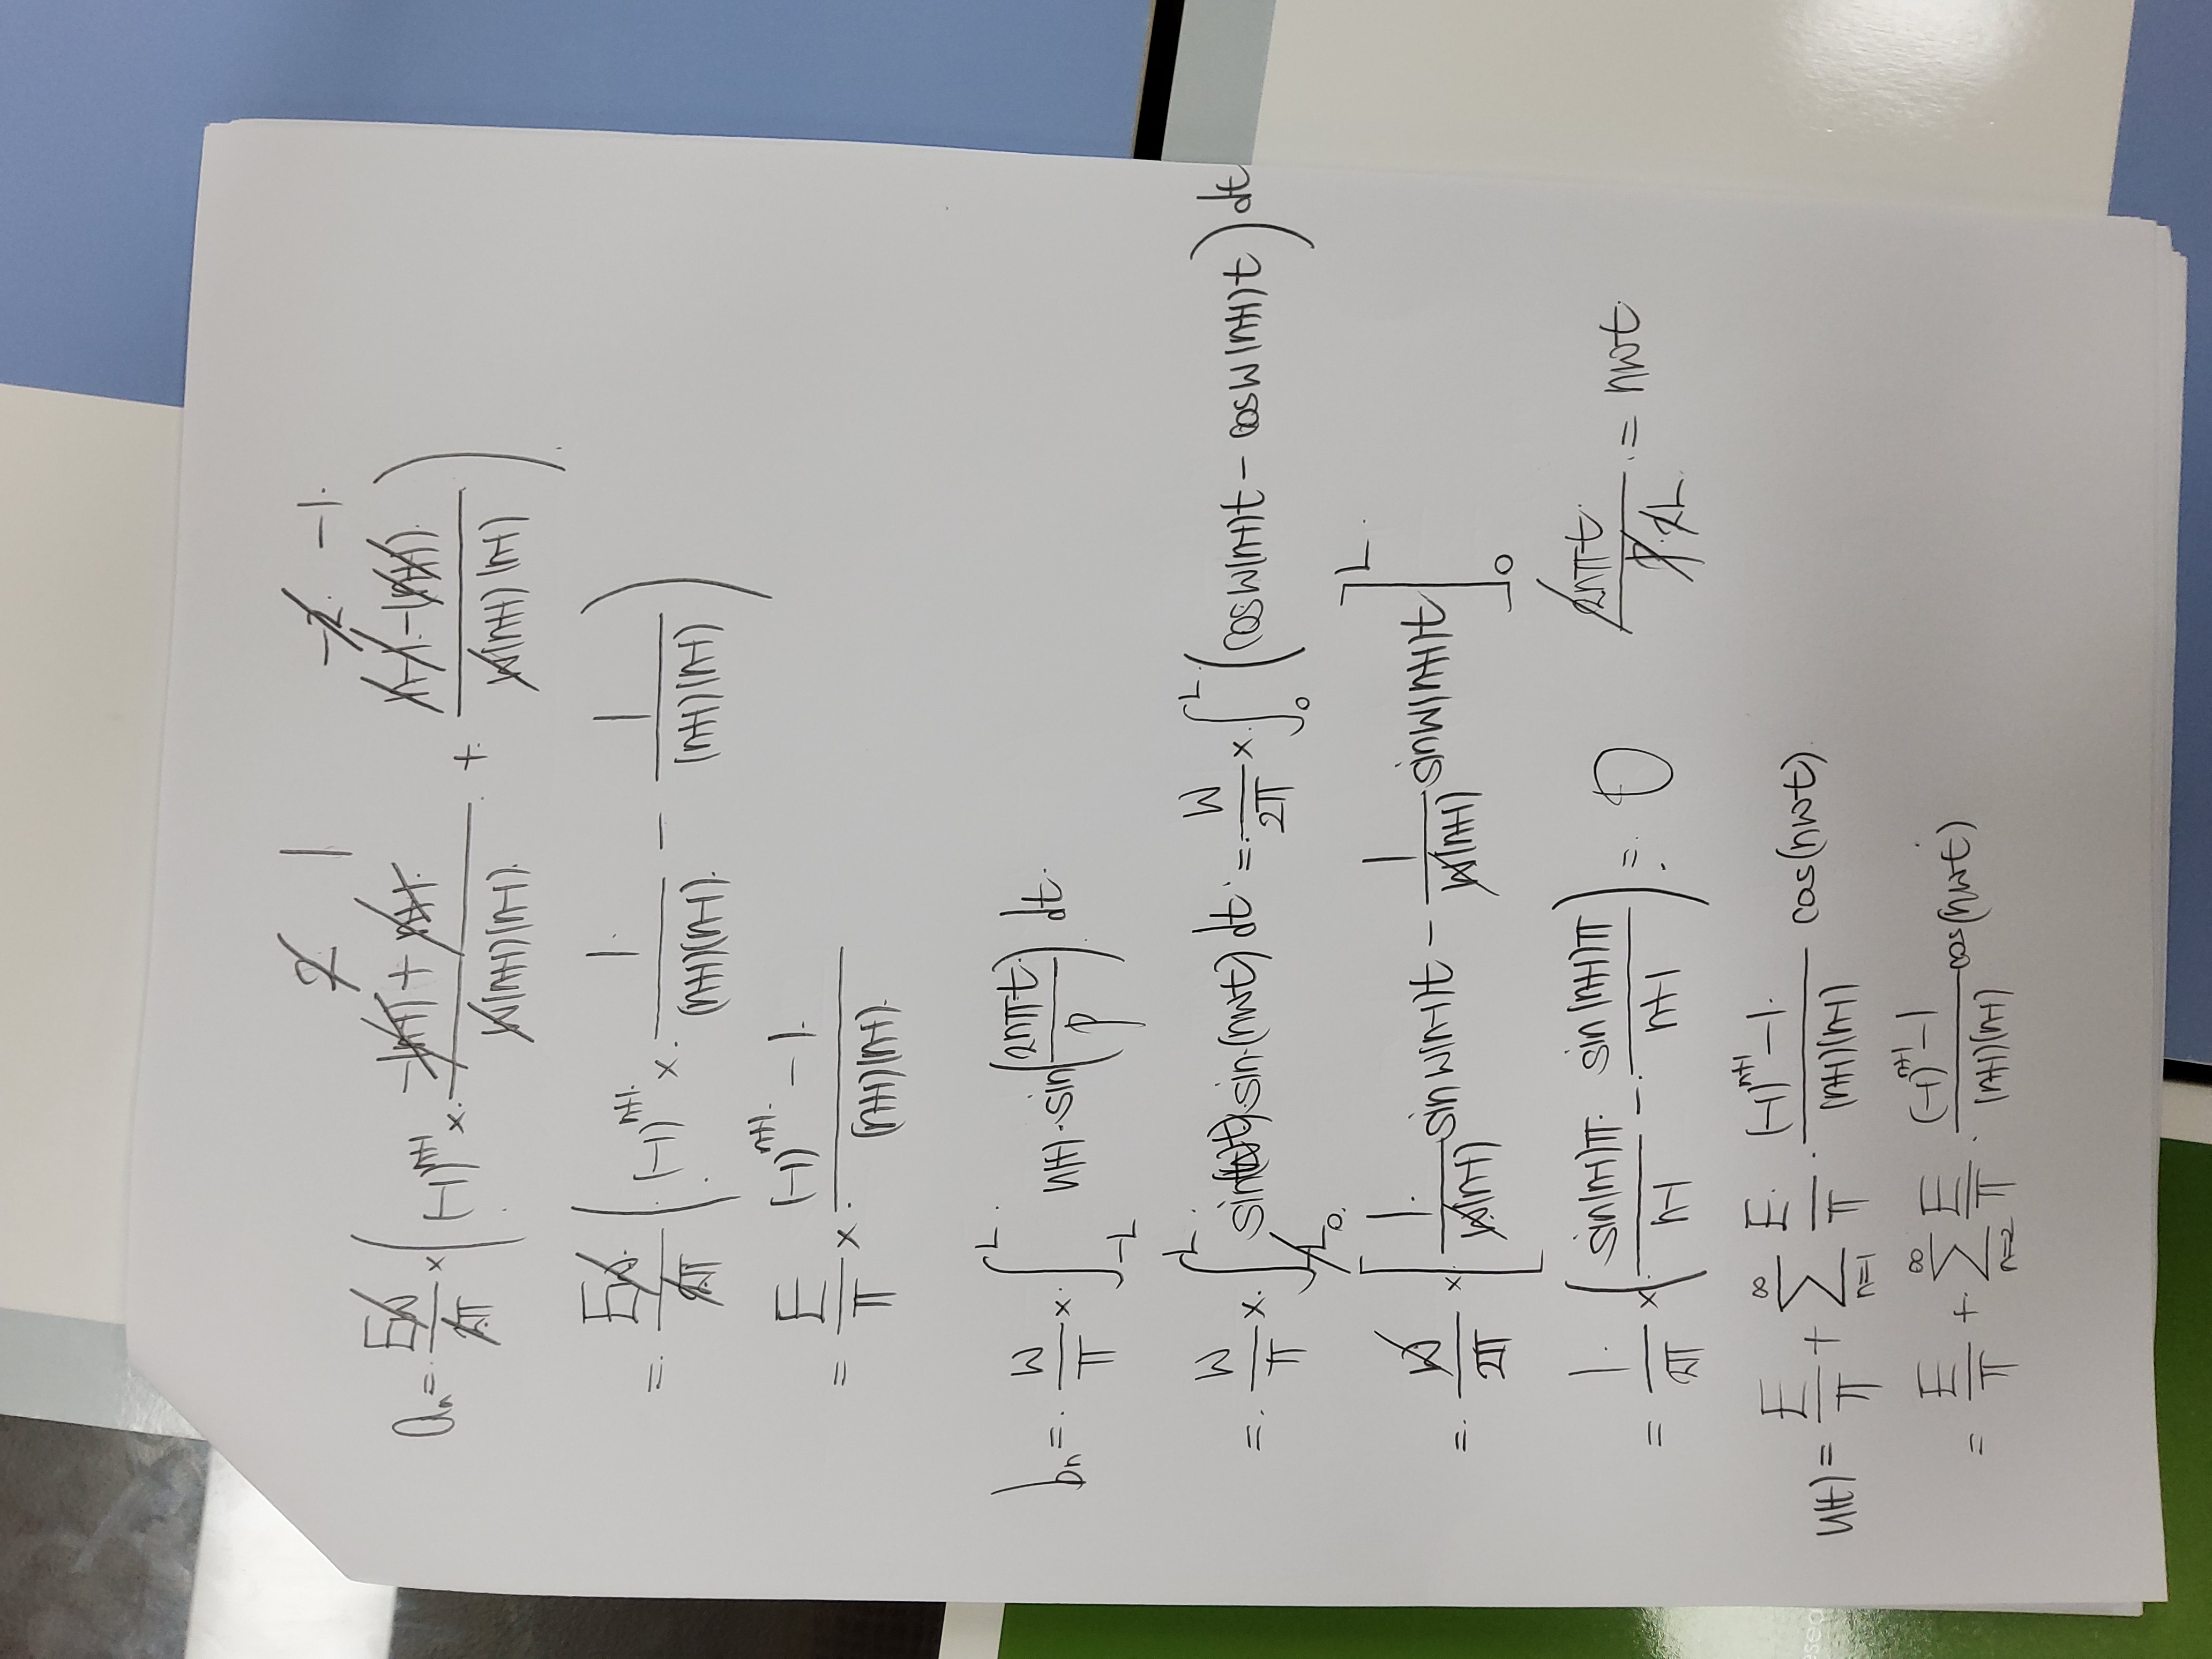 2 1 -2 -1
aₙ = Eω/2π × ( (-1)ⁿ⁺¹ × -(n-1)+n+1 / ω(n+1)(n-1) + n-1-(n+1) / ω(n+1)(n-1) )
= Eω/2π ( (-1)ⁿ⁺¹ × 1/(n+1)(n-1) - 1/(n+1)(n-1) )
= E/π × (-1)ⁿ⁺¹ - 1 / (n+1)(n-1)
bₙ = ω/π × ∫₋L^L u(t) · sin(2nπt/p) dt
= ω/π × ∫₀^L sin(ωt) · sin(nωt) dt = ω/2π × ∫₀^L (cosω(n-1)t - cosω(n+1)t) dt
= ω/2π × [ 1/ω(n-1) sinω(n-1)t - 1/ω(n+1) sinω(n+1)t ]₀^L
= 1/2π × ( sin(n-1)π / n-1 - sin(n+1)π / n+1 ) = 0 2nπt / p 2L = nωt
u(t) = E/π + ∑ₙ₌₁^∞ E/π · (-1)ⁿ⁺¹ - 1 / (n+1)(n-1) cos(nωt)
= E/π + ∑ₙ₌₂^∞ E/π · (-1)ⁿ⁺¹ - 1 / (n+1)(n-1) cos(nωt)